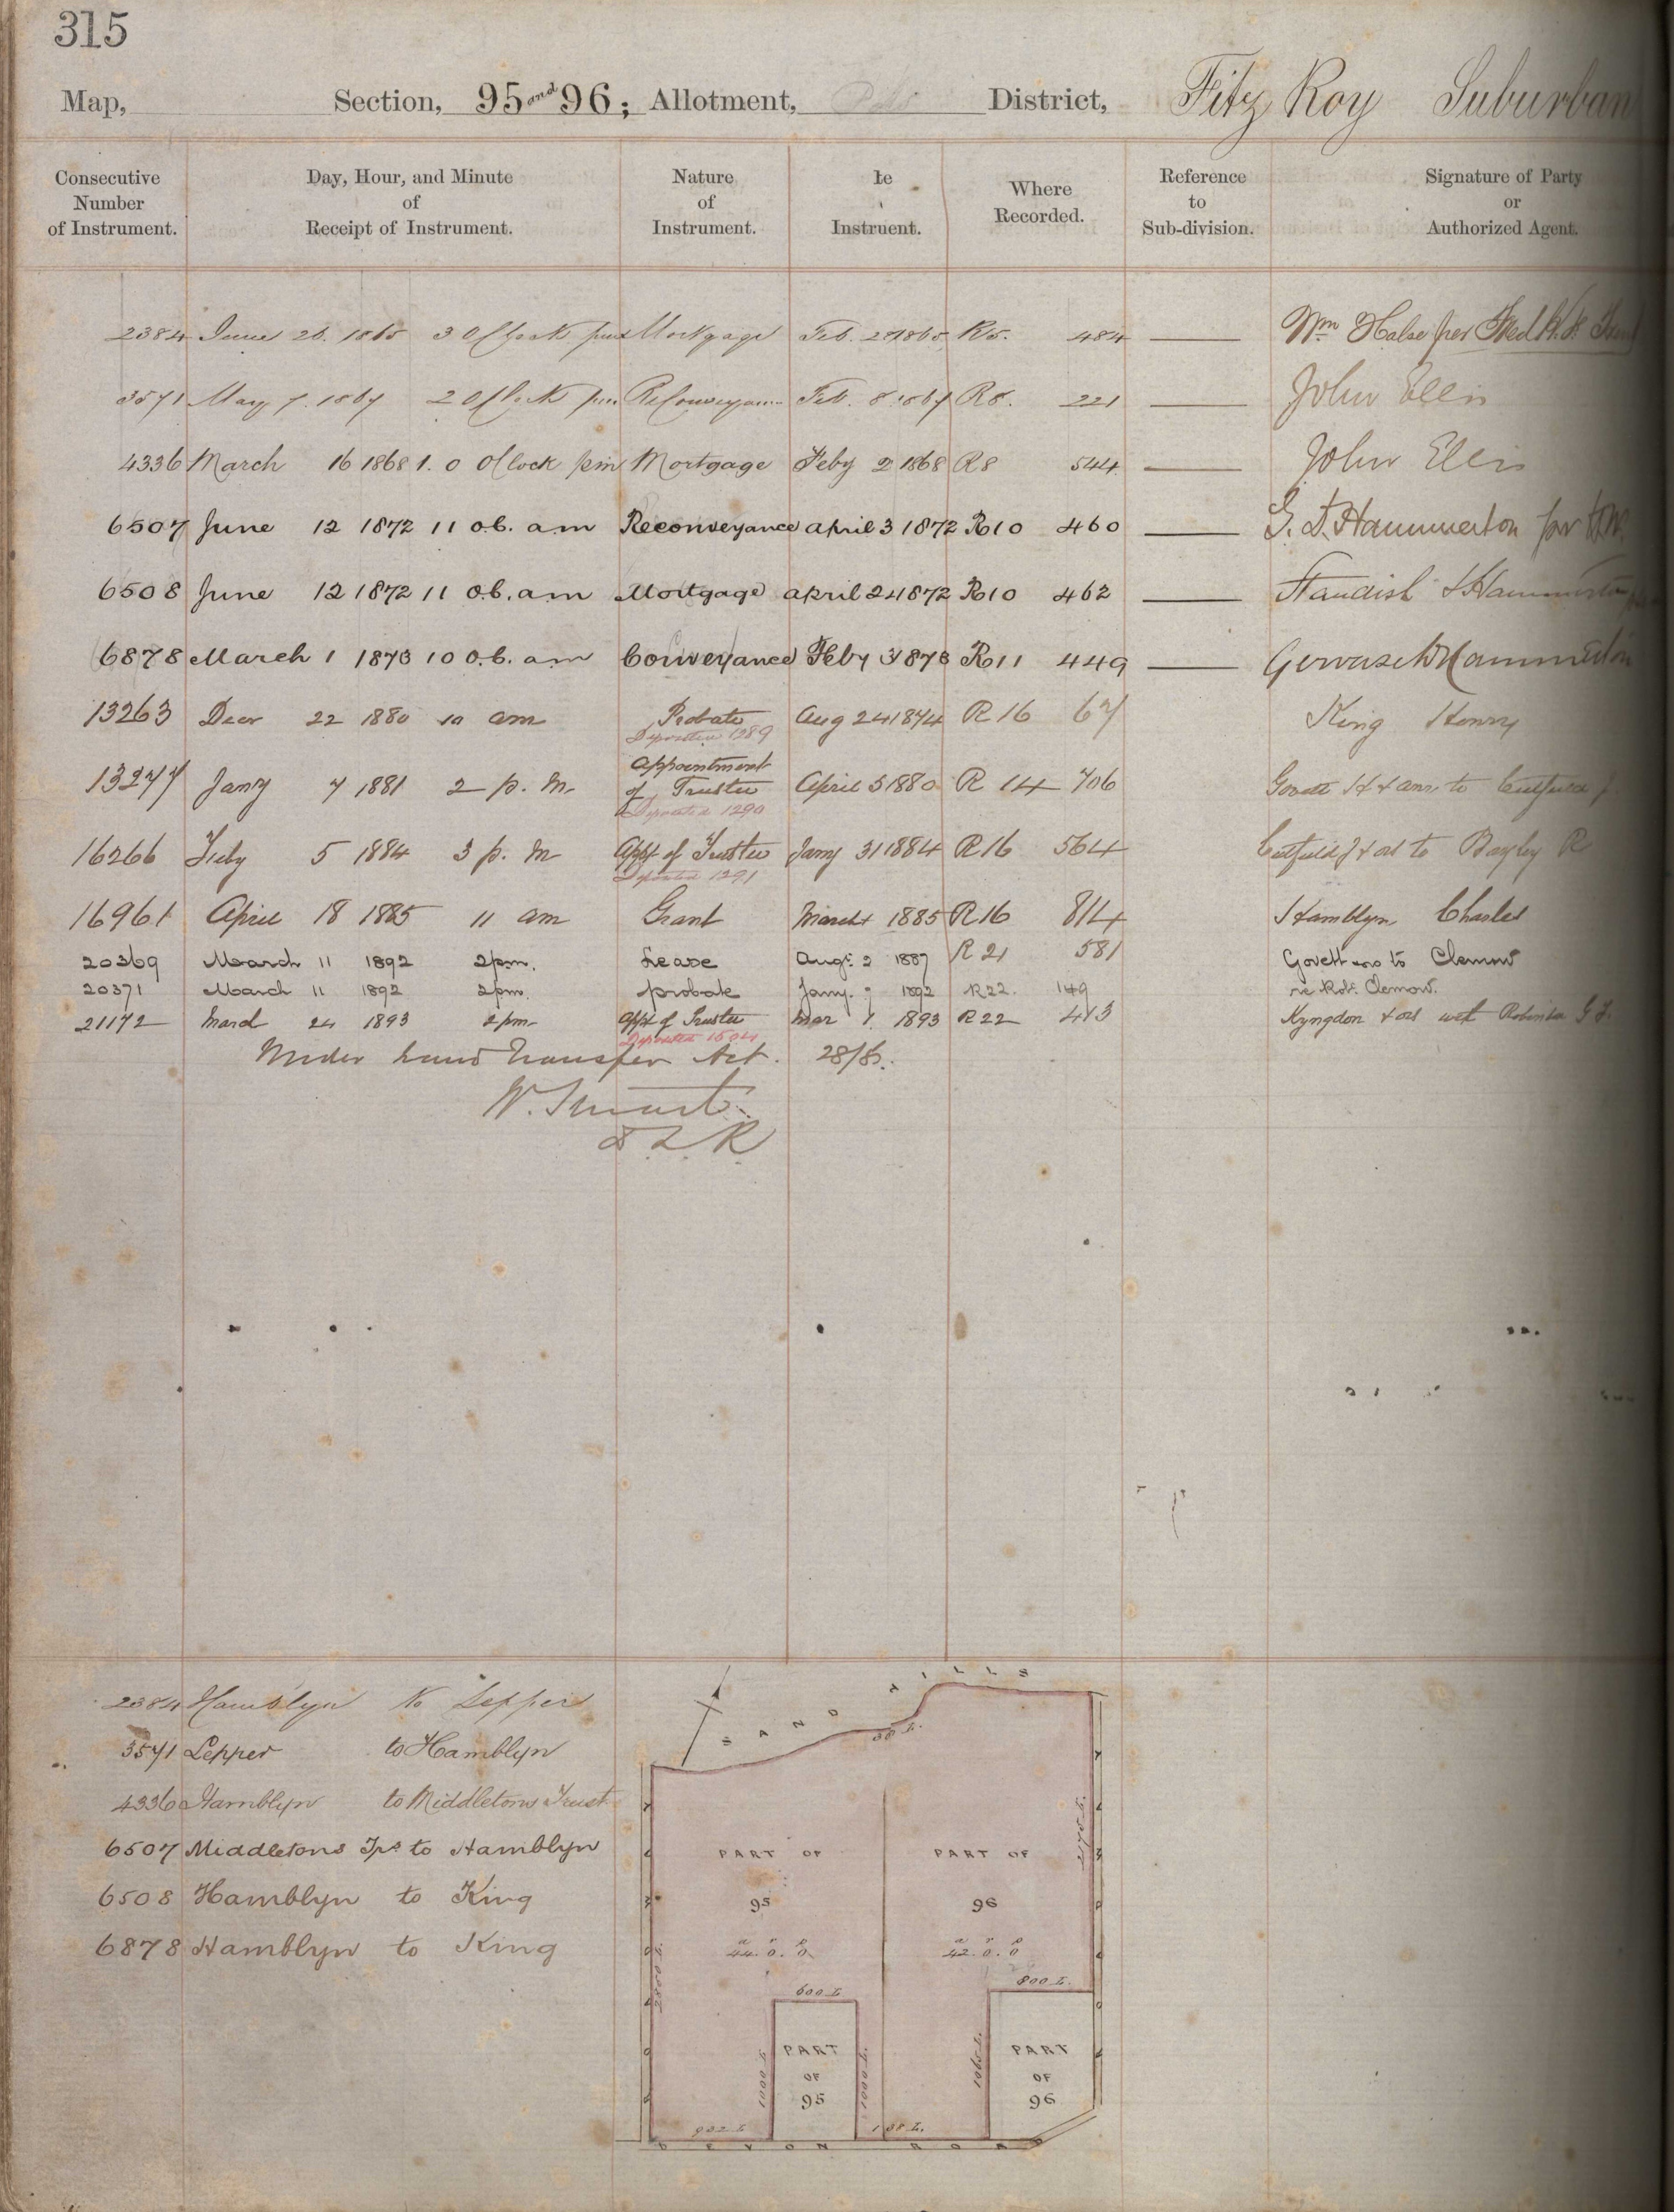 315
Map, Section, 95 and 96; Allotment, District, Fitz Roy Suburban
Consecutive Number of Instrument.
Day, Hour, and Minute of Receipt of Instrument.
Nature of Instrument.
Instrument.
Where Recorded.
Reference to Sub-division.
Signature of Party or Authorized Agent.
2384 June 26. 1865 3 O'Clock pm Mortgage Feb. 1865 R5. 484 Wm Halse per
3571 May 7. 1867 2 O'Clock pm Reconveyance Feb. 8. 1867 R8. 221 John Ellis
4336 March 16 1868 1. 0 O'Clock pm Mortgage Feby 2 1868 R8 544 John Ellis
6507 June 12 1872 11 o.c. am Reconveyance April 3 1872 R10 460 G. D. Hammerton for
6508 June 12 1872 11 o.c. am Mortgage April 2 1872 R10 462 Standish
6878 March 1 1873 10 o.c. am Conveyance Feby 3 1873 R11 449 Gervase D Hammerton
13263 Decr 22 1880 10 am Probate Aug 24 1874 R 16 67 King Henry
Deposited 1289
13277 Jany 7 1881 2 p. m. Appointment of Trustee April 5 1880 R 14 706 Govett H & anr to Cutfield J.
Deposited 1290
16266 July 5 1884 3 p. m Appt of Trustee Jany 31 1884 R 16 564 Cutfield J & ors to Bayley R
Deposited 1291
16961 April 18 1885 11 am Grant March 1885 R 16 814 Hamblyn Charles
20369 March 11 1892 2 pm. Lease Augt 2 1887 R 21 581 Govett & ors to Clemow
20371 March 11 1892 2 pm. Probate Jany. 9 1892 R22. 149 re Robt. Clemow.
21172 March 24 1893 2 pm Appt of Trustee Mar 1 1893 R 22 413 Kyngdon & ors with
Deposited
Under Land Transfer Act. 28/8.
W. Stuart
D L R
2384 Hamblyn to Lepper
3571 Lepper to Hamblyn
4336 Hamblyn to Middletons Trust
6507 Middletons Trs to Hamblyn
6508 Hamblyn to King
6878 Hamblyn to King
SAND HILLS
PART OF 95
PART OF 96
a r p
44. 0. 0
a r p
42. 0. 0
600 L
800 L.
1000 L
1000 L
1065 L.
PART OF 95
PART OF 96
902 L
DEVON ROAD